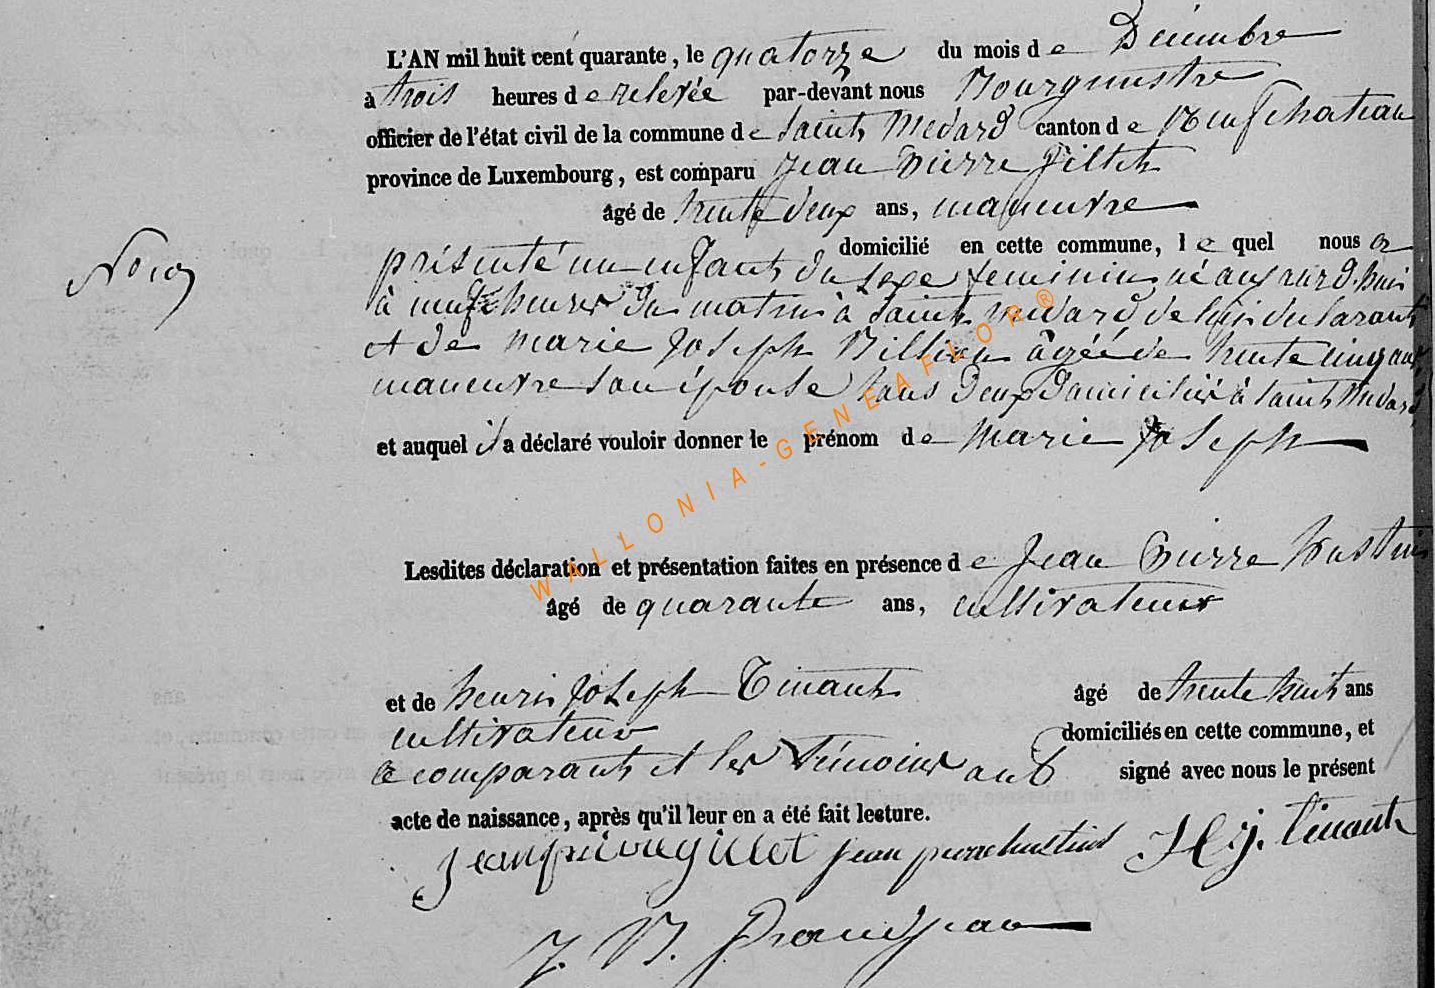 L'AN mil huit cent quarante, le quatorze du mois de Décembre
à trois heures de relevée par-devant nous Bourgmestre
officier de l'état civil de la commune de Saint Medard canton de Neufchateau
province de Luxembourg, est comparu Jean Pierre Gillet
âgé de trente deux ans, maneuvre
domicilié en cette commune, le quel nous a
présenté un enfant du sexe feminin né aujourd'hui
à neuf heures du matin à Saint Medard de lui declarant
et de Marie Joseph âgée de trente cinq ans
maneuvre son épouse tous deux domiciliés à Saint Medard,
et auquel il a déclaré vouloir donner le prénom de Marie Joseph
Lesdites déclaration et présentation faites en présence de Jean Pierre Hustin
âgé de quarante ans, cultivateur
et de henri Joseph Tinant âgé de trente huit ans
cultivateur domiciliés en cette commune, et
le comparant et les témoins ont signé avec nous le présent
acte de naissance, après qu'il leur en a été fait lecture.
jean pierre gillet jean pierre hustin H j. tinant
J. B. Grandjean
WALLONIA-GENEAFLOR®